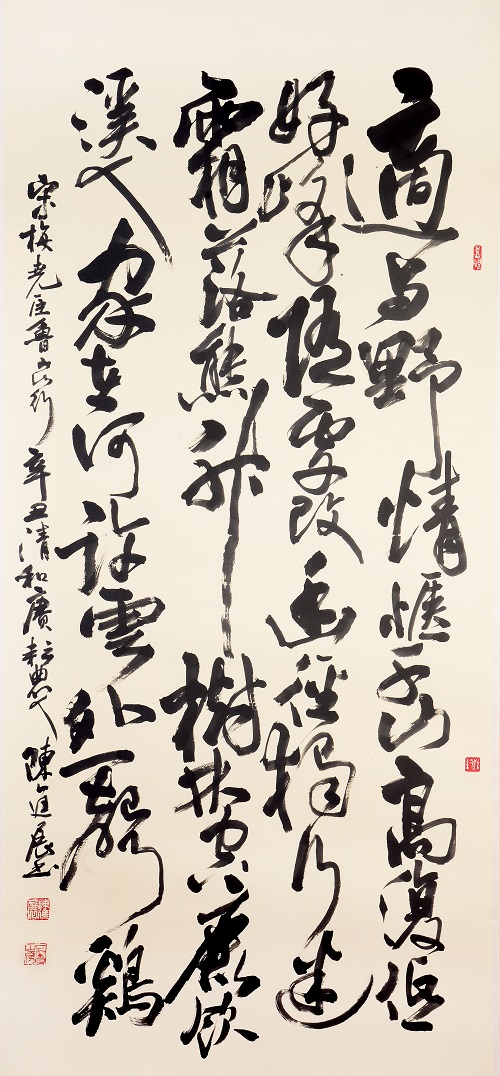 適与野情愜千山高復低
好峰隨處改幽徑獨行迷
霜落熊升樹林空鹿飲
溪人家在何許雲外一聲鷄
宋梅堯臣魯山山行 辛丑清和廣耘 陳進展書